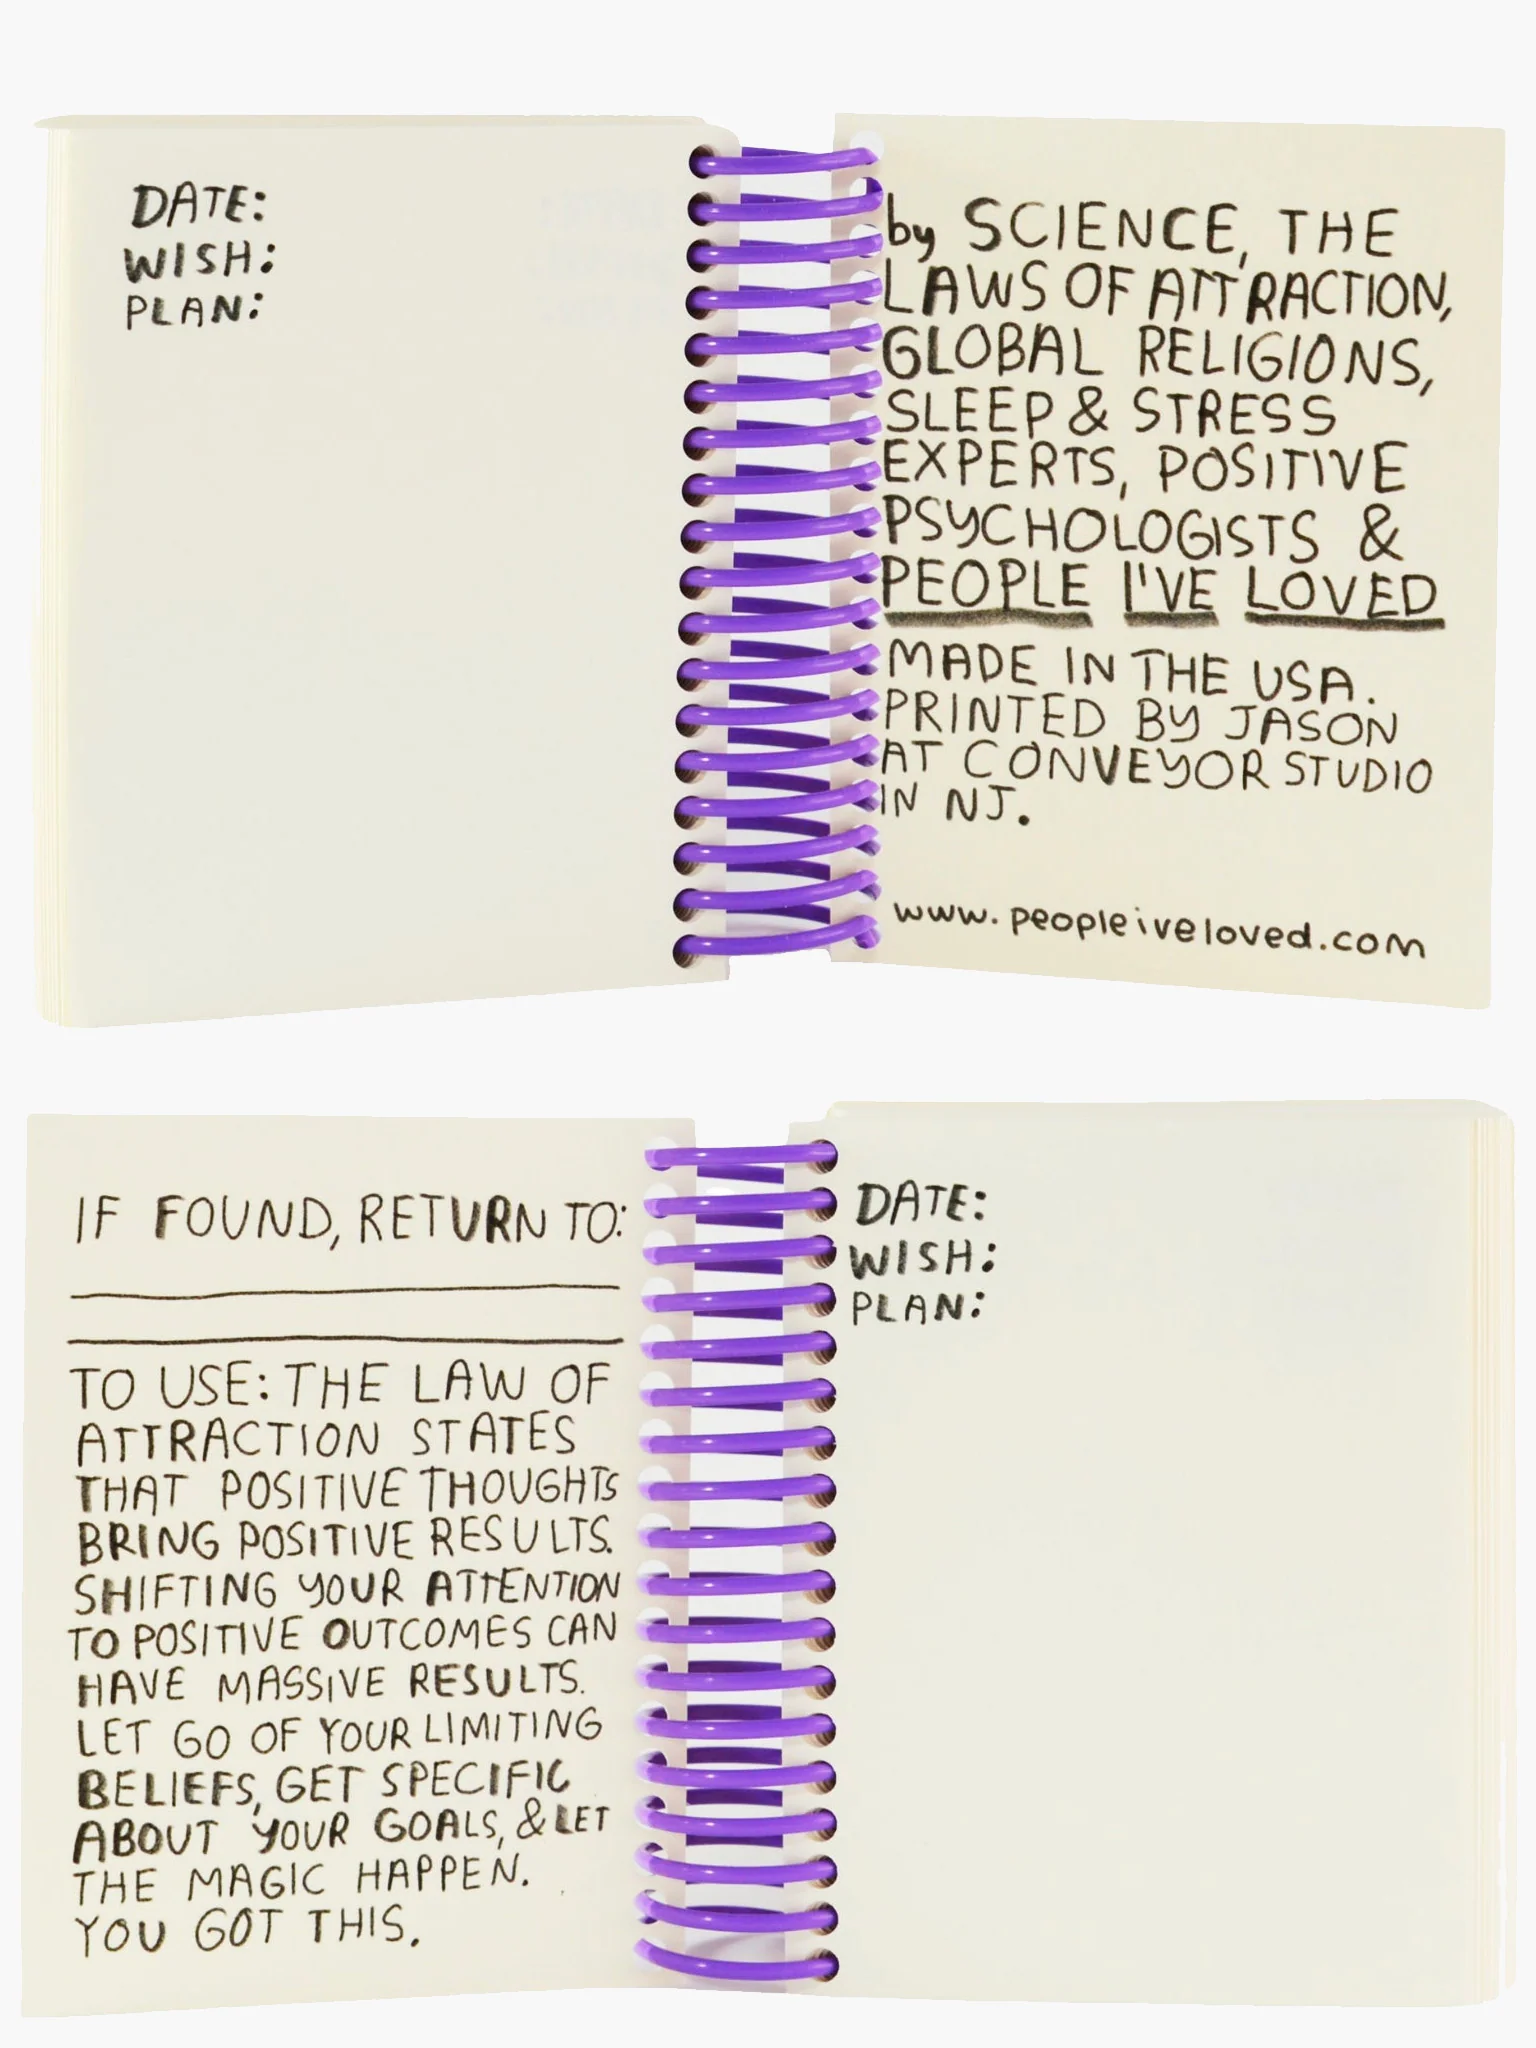 DATE:
WISH:
PLAN:
by SCIENCE, THE
LAWS OF ATTRACTION,
GLOBAL RELIGIONS,
SLEEP & STRESS
EXPERTS, POSITIVE
PSYCHOLOGISTS &
PEOPLE I'VE LOVED
MADE IN THE USA.
PRINTED BY JASON
AT CONVEYOR STUDIO
IN NJ.
www.peopleiveloved.com
IF FOUND, RETURN TO:
TO USE: THE LAW OF
ATTRACTION STATES
THAT POSITIVE THOUGHTS
BRING POSITIVE RESULTS.
SHIFTING YOUR ATTENTION
TO POSITIVE OUTCOMES CAN
HAVE MASSIVE RESULTS.
LET GO OF YOUR LIMITING
BELIEFS, GET SPECIFIC
ABOUT YOUR GOALS, & LET
THE MAGIC HAPPEN.
YOU GOT THIS.
DATE:
WISH:
PLAN: